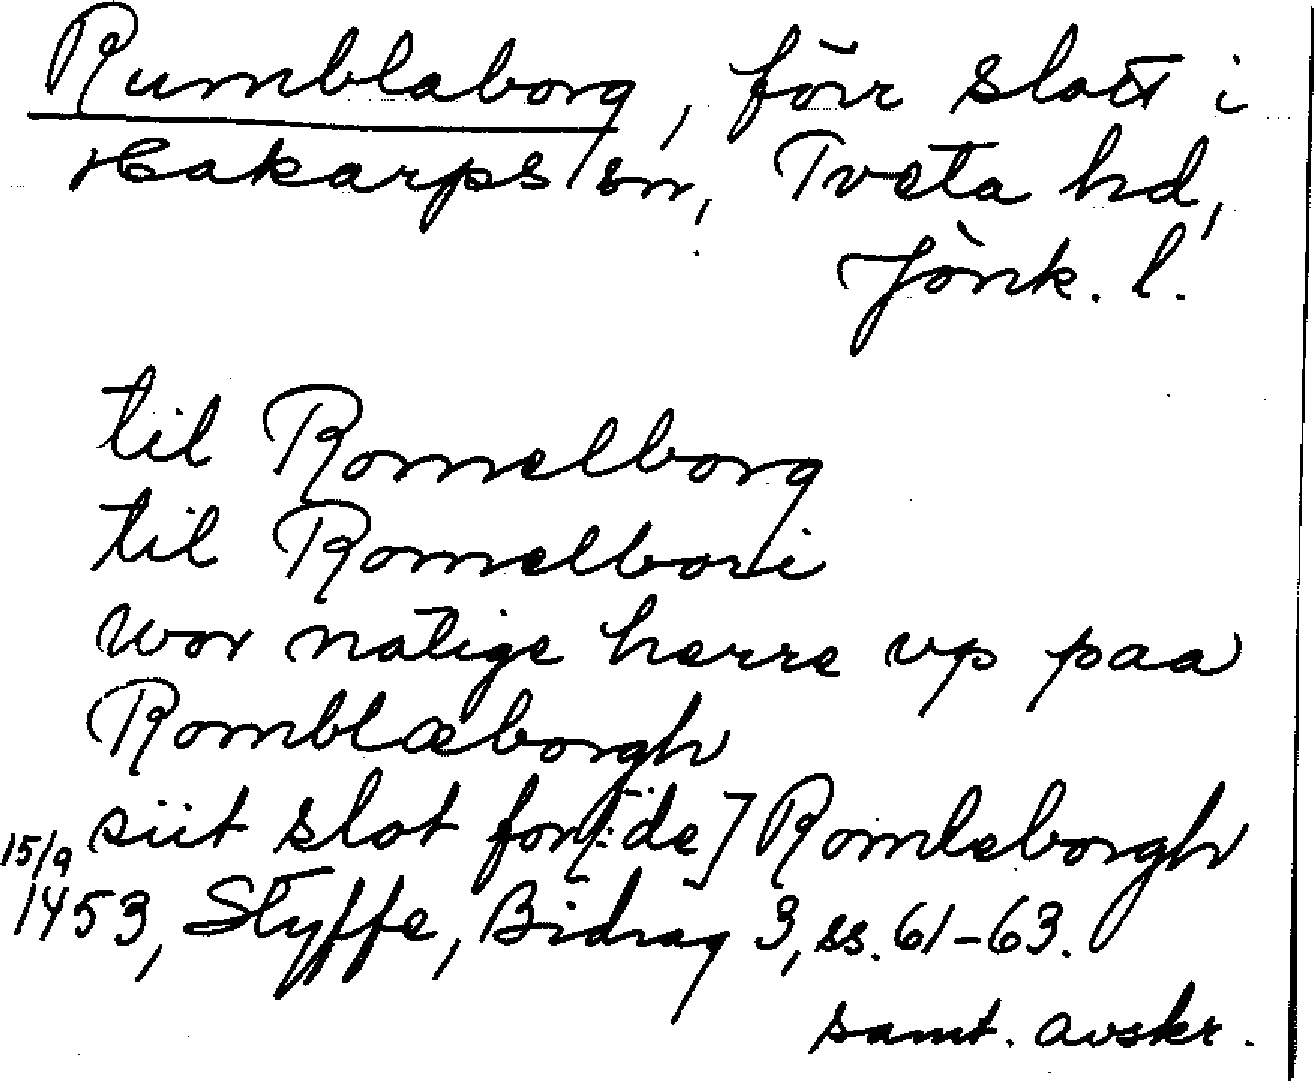 Rumblaborg, förr slott i
Hakarps sn, Tveta hd,
Jönk. l.
til Romelborg
til Romelbori
wor natige herre vp paa
Romblæborgh
siit slot for[:de] Romleborgh
15/9
1453, Styffe, Bidrag 3, ss. 61-63.
samt. avskr.